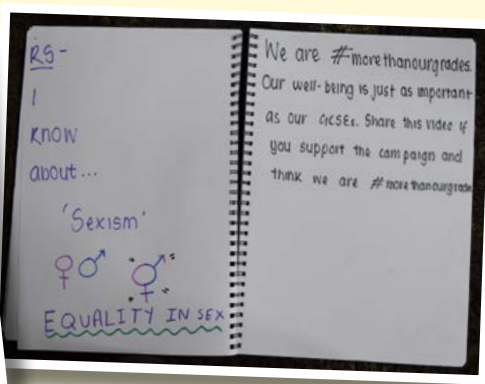 RS -
I
know
about...
'Sexism'
EQUALITY IN SEX
We are #morethanourgrades.
Our well-being is just as important
as our GCSEs. Share this video if
you support the campaign and
think we are #morethanourgrades